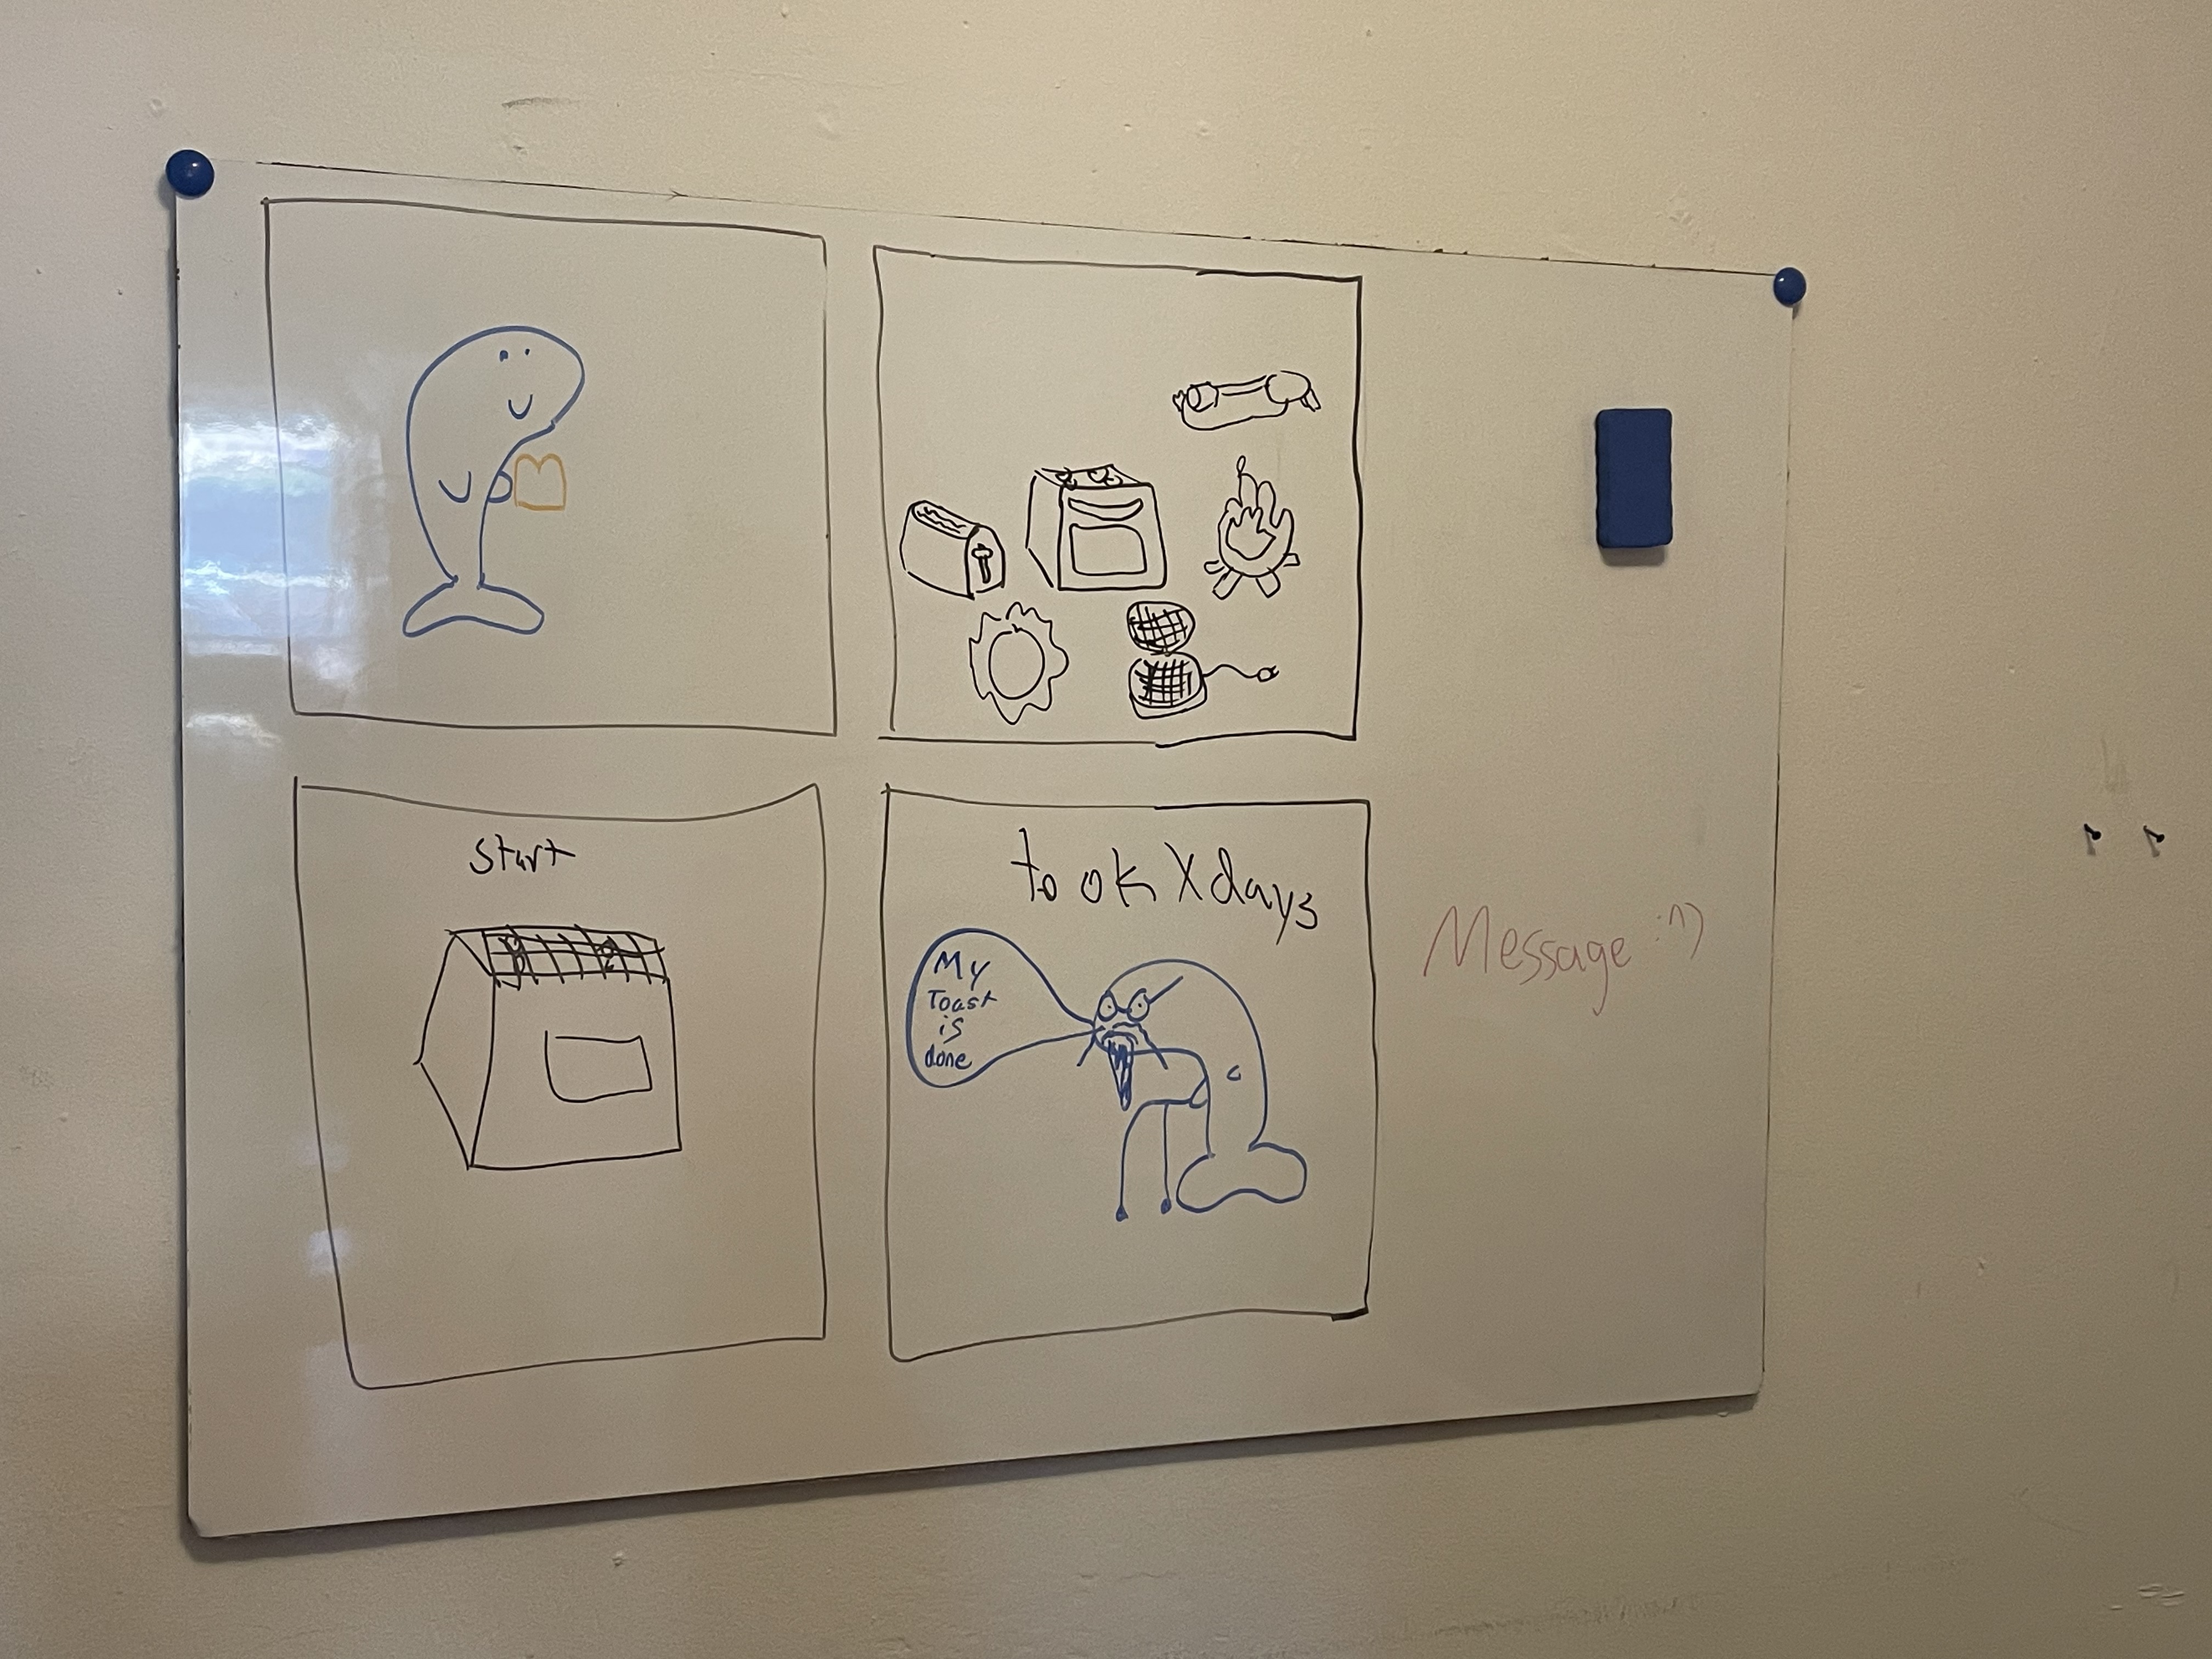 start
took X days
My
Toast
is
done
Message :^)